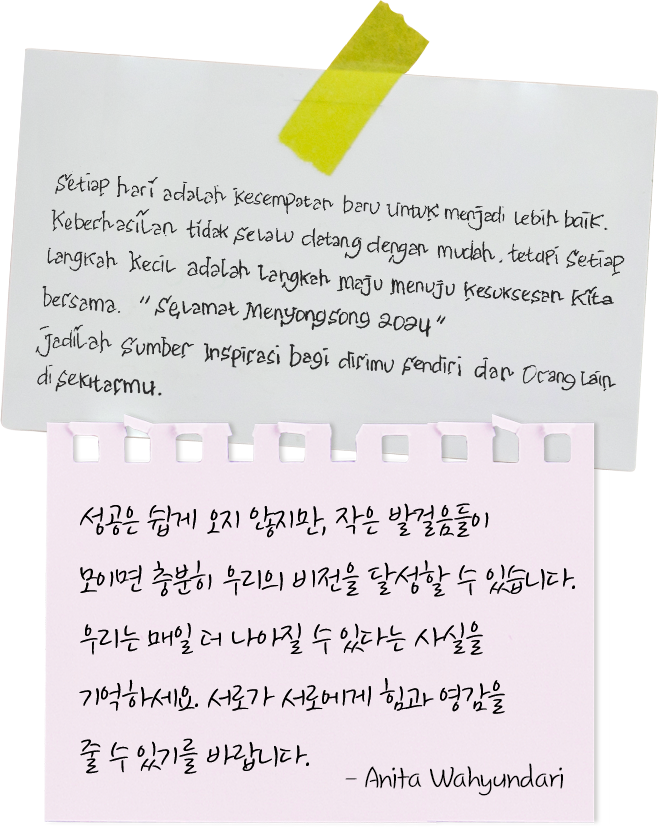 Setiap hari adalah kesempatan baru untuk menjadi lebih baik.
Keberhasilan tidak selalu datang dengan mudah, tetapi setiap
langkah kecil adalah langkah maju menuju kesuksesan kita
bersama. "Selamat Menyongsong 2024"
Jadilah sumber inspirasi bagi dirimu sendiri dan orang lain
di sekitarmu.
성공은 쉽게 오지 않지만, 작은 발걸음들이
모이면 충분히 우리의 비전을 달성할 수 있습니다.
우리는 매일 더 나아질 수 있다는 사실을
기억하세요. 서로가 서로에게 힘과 영감을
줄 수 있기를 바랍니다.
- Anita Wahyundari